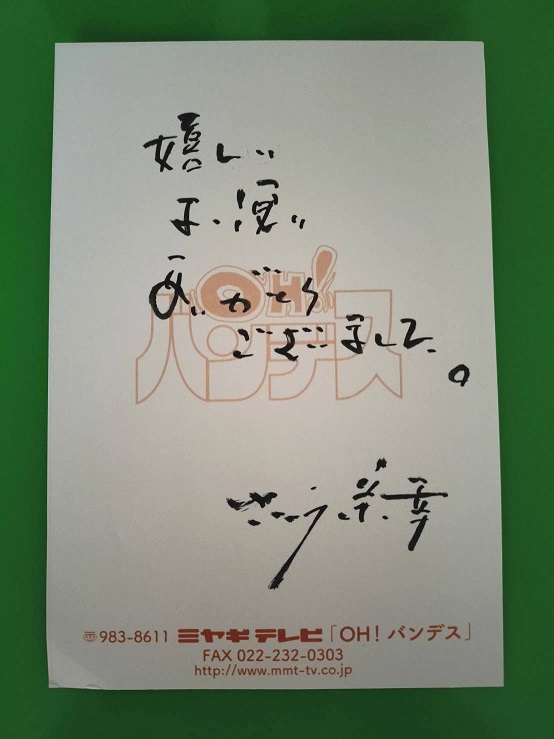 嬉しい
お便り
ありがとう
ございました。
さとう宗幸
OH!
バンデス
〠983-8611 ミヤギテレビ「OH! バンデス」
FAX 022-232-0303
http://www.mmt-tv.co.jp